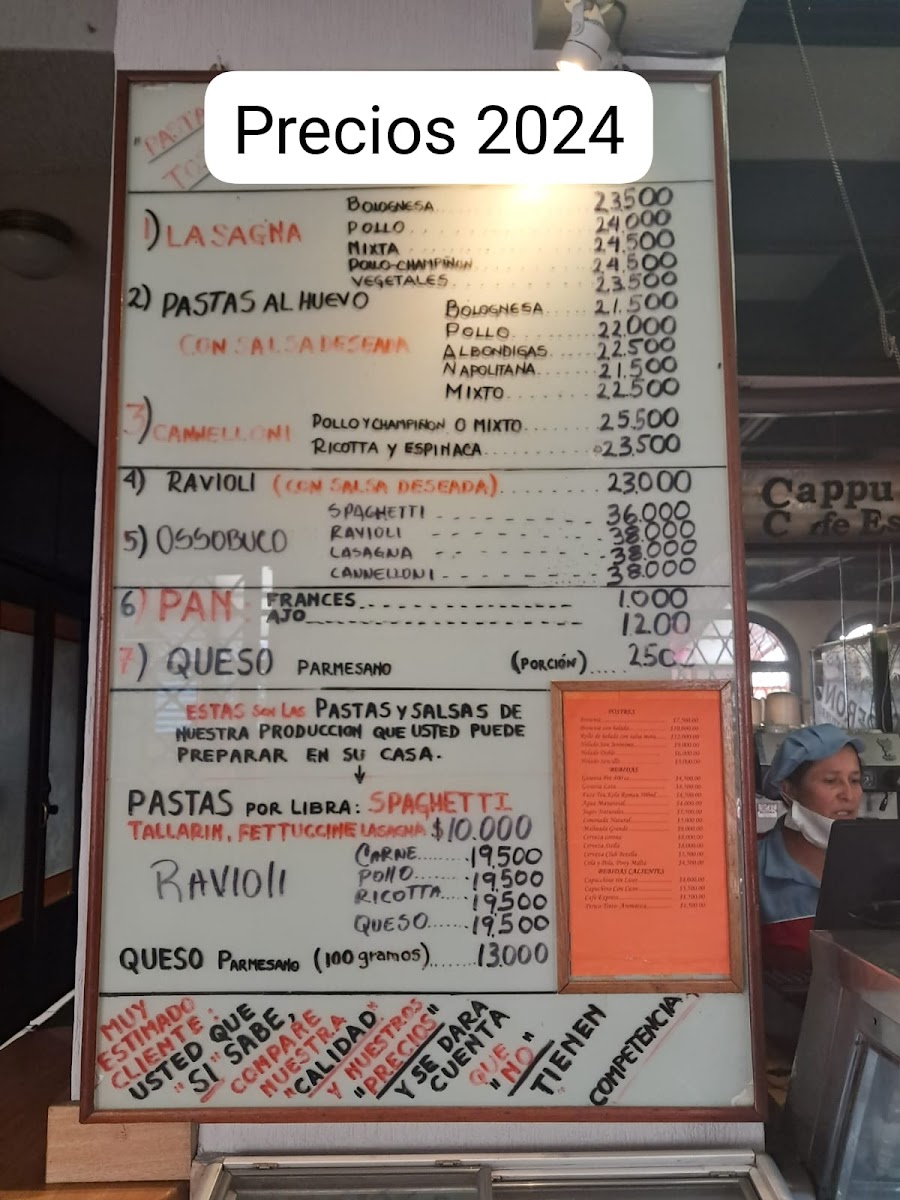 Precios 2024
"PASTA
1) LASAGNA BOLOGNESA 23.500
POLLO 24.000
MIXTA 24.500
POLLO-CHAMPIÑON 24.500
VEGETALES 23.500
2) PASTAS AL HUEVO
CON SALSA DESEADA
BOLOGNESA 21.500
POLLO 22.000
ALBONDIGAS 22.500
NAPOLITANA 21.500
MIXTO 22.500
3) CANNELLONI POLLO Y CHAMPIÑON O MIXTO 25.500
RICOTTA Y ESPINACA 23.500
4) RAVIOLI (CON SALSA DESEADA) 23.000
5) OSSOBUCO SPAGHETTI 36.000
RAVIOLI 38.000
LASAGNA 38.000
CANNELLONI 38.000
6) PAN FRANCES 1.000
AJO 1.200
7) QUESO PARMESANO (PORCIÓN)
ESTAS SON LAS PASTAS Y SALSAS DE
NUESTRA PRODUCCION QUE USTED PUEDE
PREPARAR EN SU CASA.
PASTAS POR LIBRA: SPAGHETTI
TALLARIN, FETTUCCINE LASAGNA $10.000
RAVIOLI CARNE 19,500
POLLO 19,500
RICOTTA 19,500
QUESO 19,500
QUESO PARMESANO (100 gramos) 13.000
POSTRES
BEBIDAS
BEBIDAS CALIENTES
MUY
ESTIMADO
CLIENTE:
USTED QUE
"SI" SABE,
COMPARE
NUESTRA
"CALIDAD"
Y NUESTROS
"PRECIOS"
Y SE DARA
CUENTA
QUE
"NO"
TIENEN
COMPETENCIA
Cappu